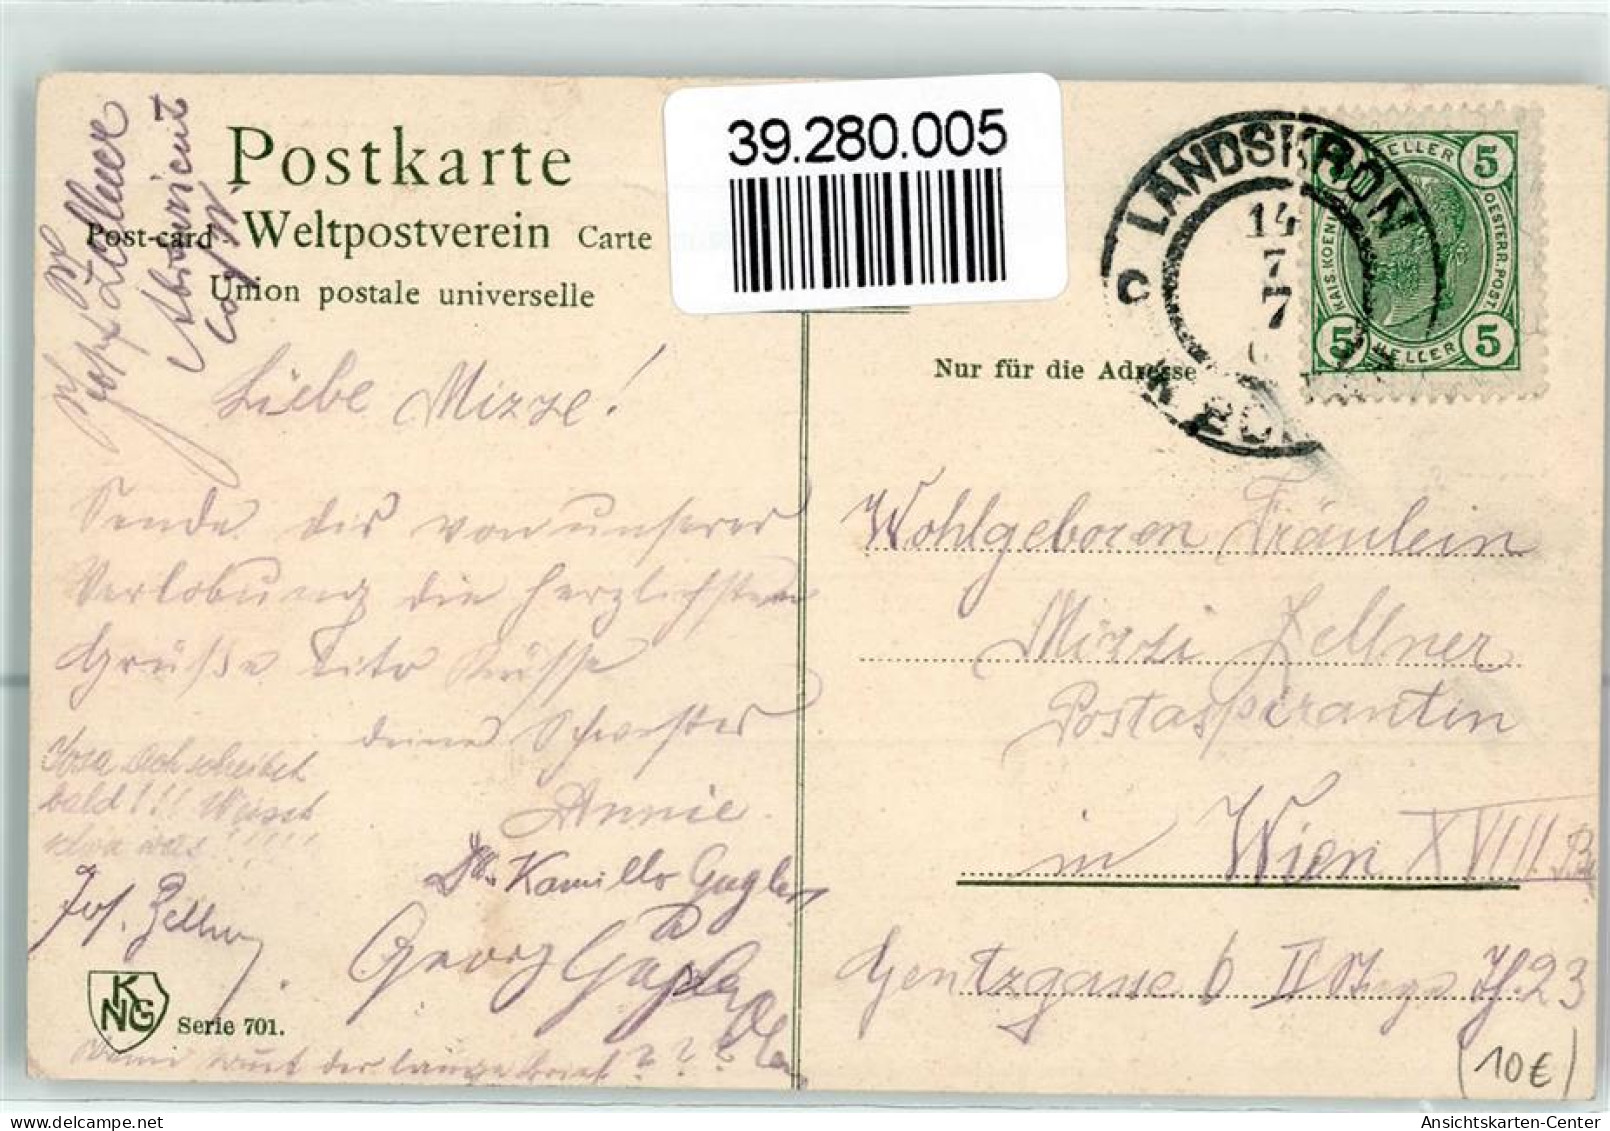 39.280.005
Postkarte
Post-card Weltpostverein Carte
Union postale universelle
Josef Zellner
Abiturient
LANDSKRON
14
7
7
HELLER
5 5
KAIS. KOEN. OESTERR. POST
5 5
HELLER
Nur für die Adresse
Liebe Mizze!
Sende dir von unserer
Verlobung die herzlichsten
Grüße Tito Küsse
deine Schwester
Annie.
Dr. Kamillo Gugler
Georg
bald!!! Weisst
was!!!!!
Jos. Zellner
Wohlgeboren Fräulein
Mizzi Zellner
Postaspirantin
in Wien XVIII.
Gentzgasse 6 II Stiege Th. 23
KNG
Serie 701.
der lange brief? ? ?
(10€)
Ansichtskarten-Center